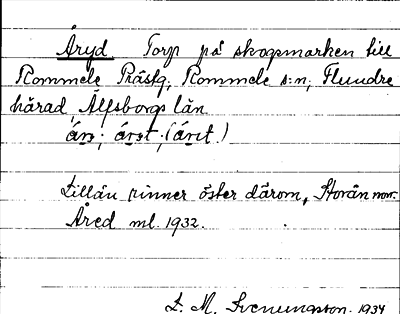 Åryd Torp på skogsmarken till
Rommele Prästg, Rommele s:n, Flundre
härad Älfsborgs län.
Lillån rinner öster därom, Storån norr.
Åred ml. 1932.
L. M. Svenungsson. 1934